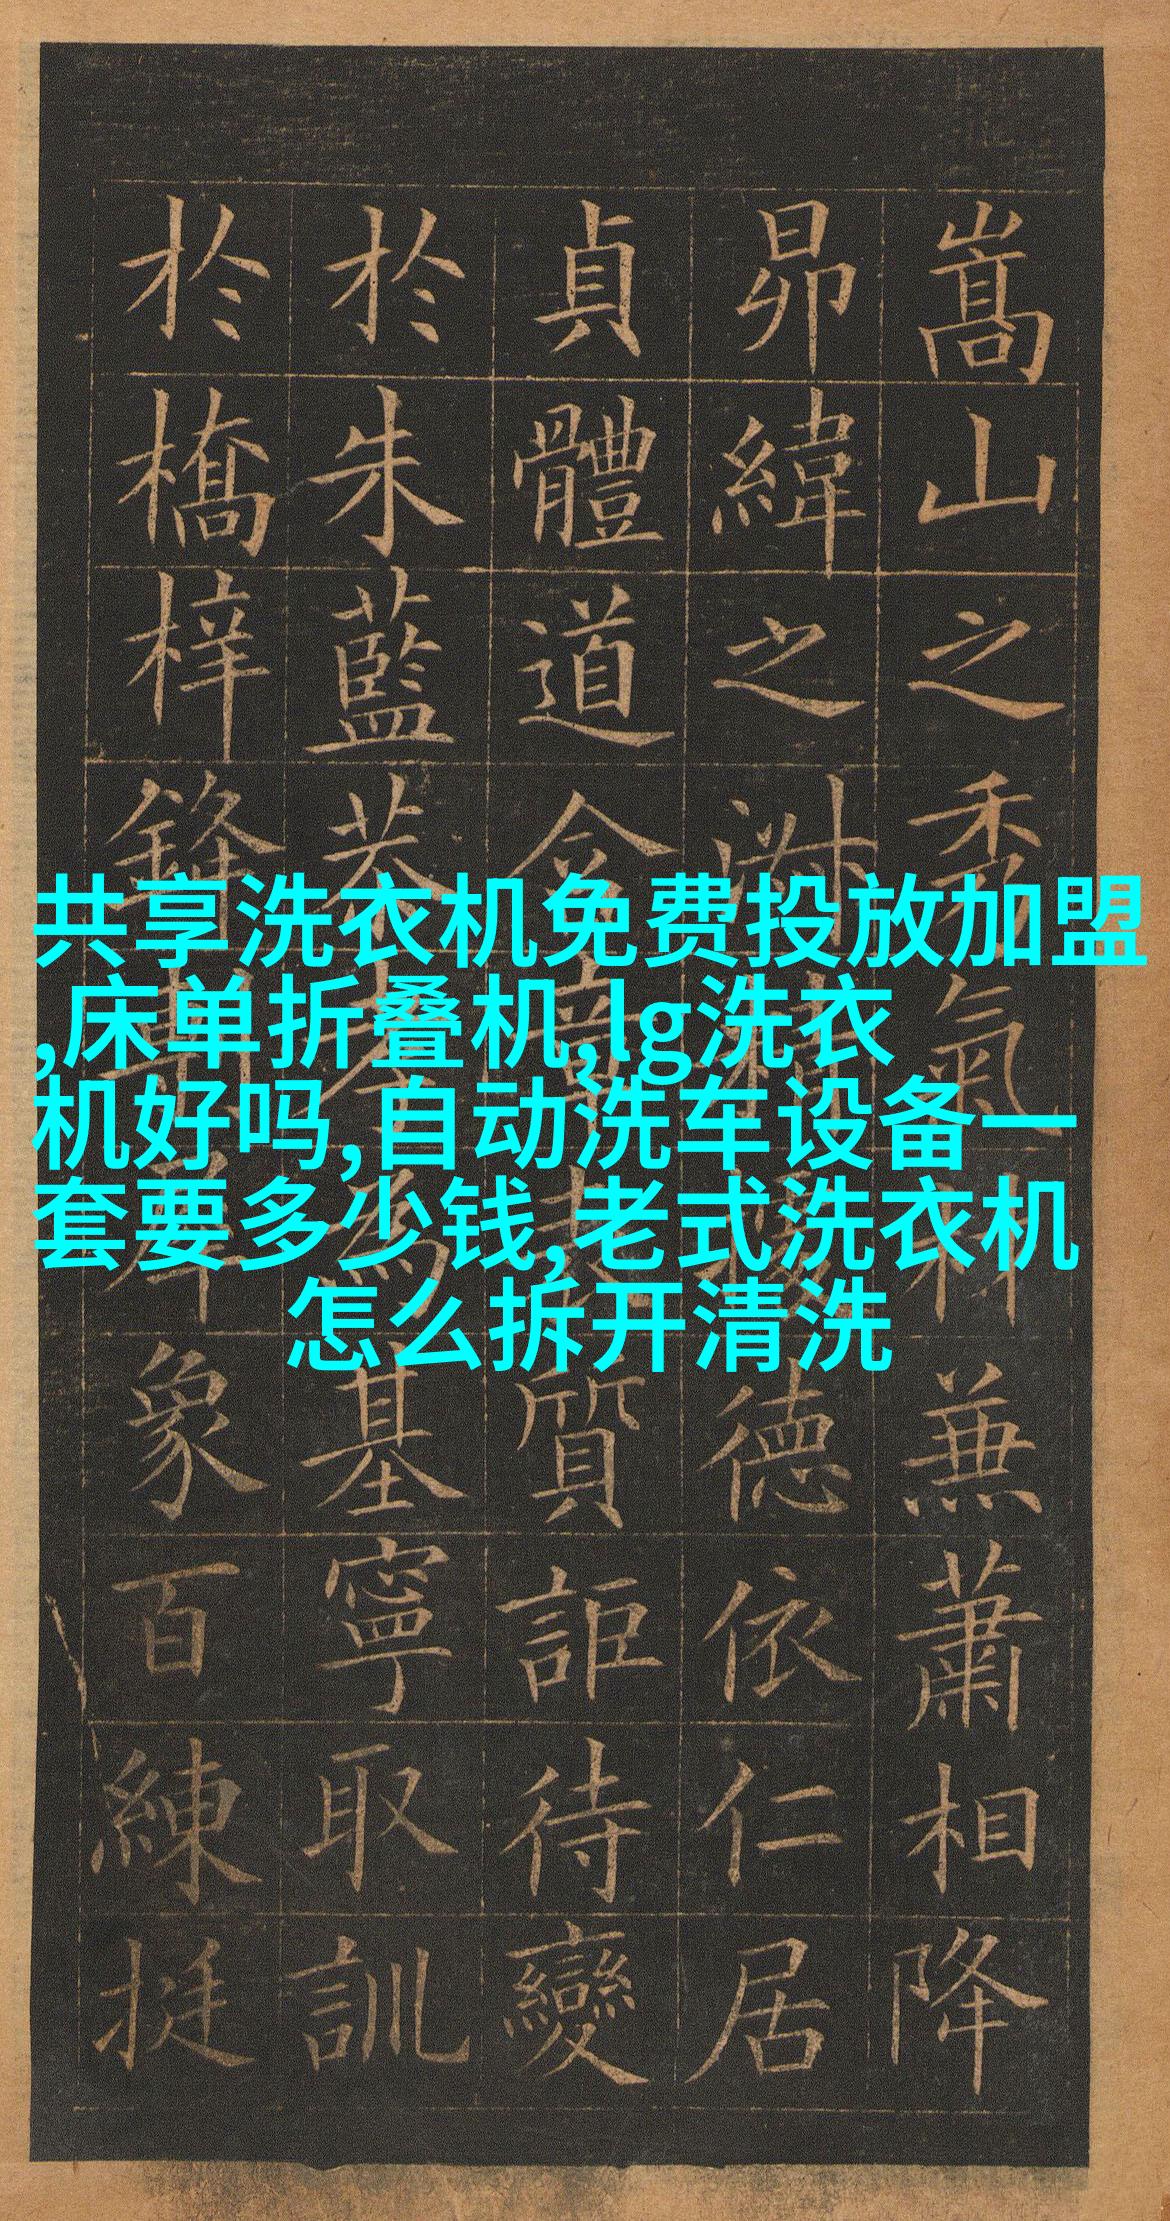 嵩山之秀氣兼蕭相降
昴緯之德依仁居
貞體道含質詎待變
於朱藍恭孝為基寧取訓
於橋梓鋒犀象百練挺
共享洗衣机免费投放加盟
,床单折叠机,lg洗衣
机好吗,自动洗车设备一
套要多少钱,老式洗衣机
怎么拆开清洗